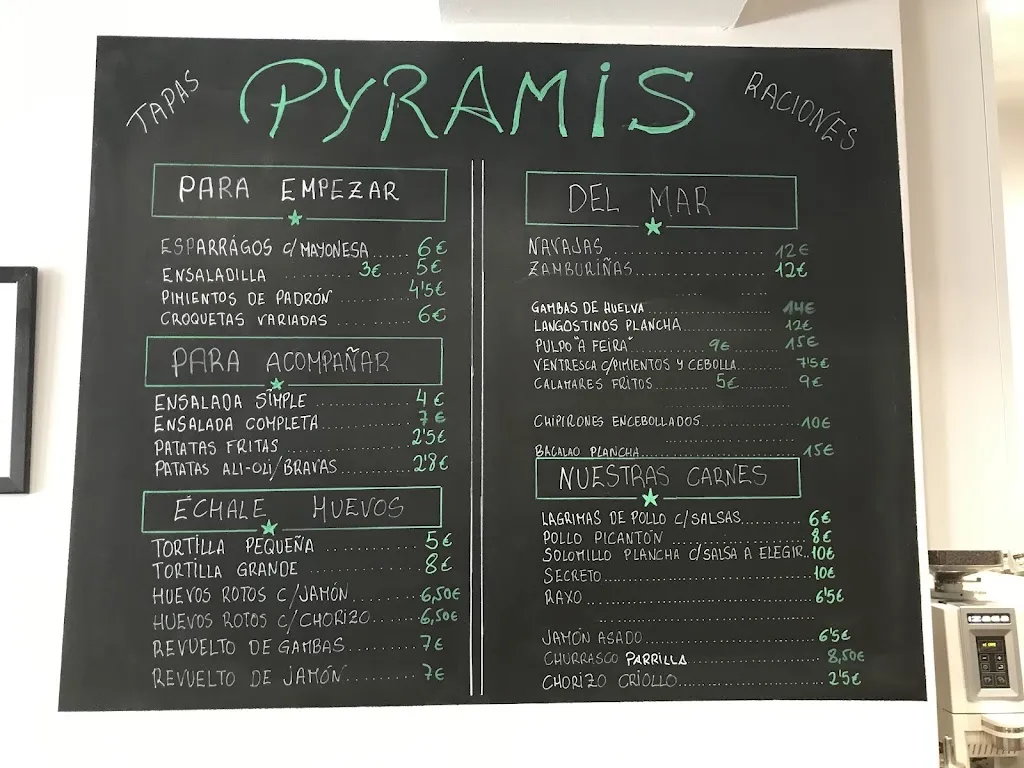 TAPAS
PYRAMIS
RACIONES
PARA EMPEZAR
ESPARRÁGOS C/MAYONESA...... 6€
ENSALADILLA ........ 3€ ..... 5€
PIMIENTOS DE PADRÓN .......... 4'5€
CROQUETAS VARIADAS .......... 6€
PARA ACOMPAÑAR
ENSALADA SÍMPLE .............. 4€
ENSALADA COMPLETA............ 7€
PATATAS FRITAS ................ 2'5€
PATATAS ALI-OLI/BRAVAS......... 2'8€
ÉCHALE HUEVOS
TORTILLA PEQUEÑA ........... 5€
TORTILLA GRANDE ............. 8€
HUEVOS ROTOS C/JAMÓN......... 6,50€
HUEVOS ROTOS C/CHORIZO...... 6,50€
REVUELTO DE GAMBAS......... 7€
REVUELTO DE JAMÓN......... 7€
DEL MAR
NAVAJAS........................ 12€
ZAMBURIÑAS.................... 12€
GAMBAS DE HUELVA .............. 14€
LANGOSTINOS PLANCHA............ 12€
PULPO "A FEIRA" ......... 9€ ........ 15€
VENTRESCA C/PIMIENTOS Y CEBOLLA....... 7'5€
CALAMARES FRITOS ......... 5€ ........ 9€
CHIPIRONES ENCEBOLLADOS............ 10€
BACALAO PLANCHA................... 15€
NUESTRAS CARNES
LAGRIMAS DE POLLO C/SALSAS.......... 6€
POLLO PICANTÓN .................... 8€
SOLOMILLO PLANCHA C/SALSA A ELEGIR..10€
SECRETO........................... 10€
RAXO ............................. 6'5€
JAMÓN ASADO ..................... 6'5€
CHURRASCO PARRILLA................ 8,50€
CHORIZO CRIOLLO................... 2'5€